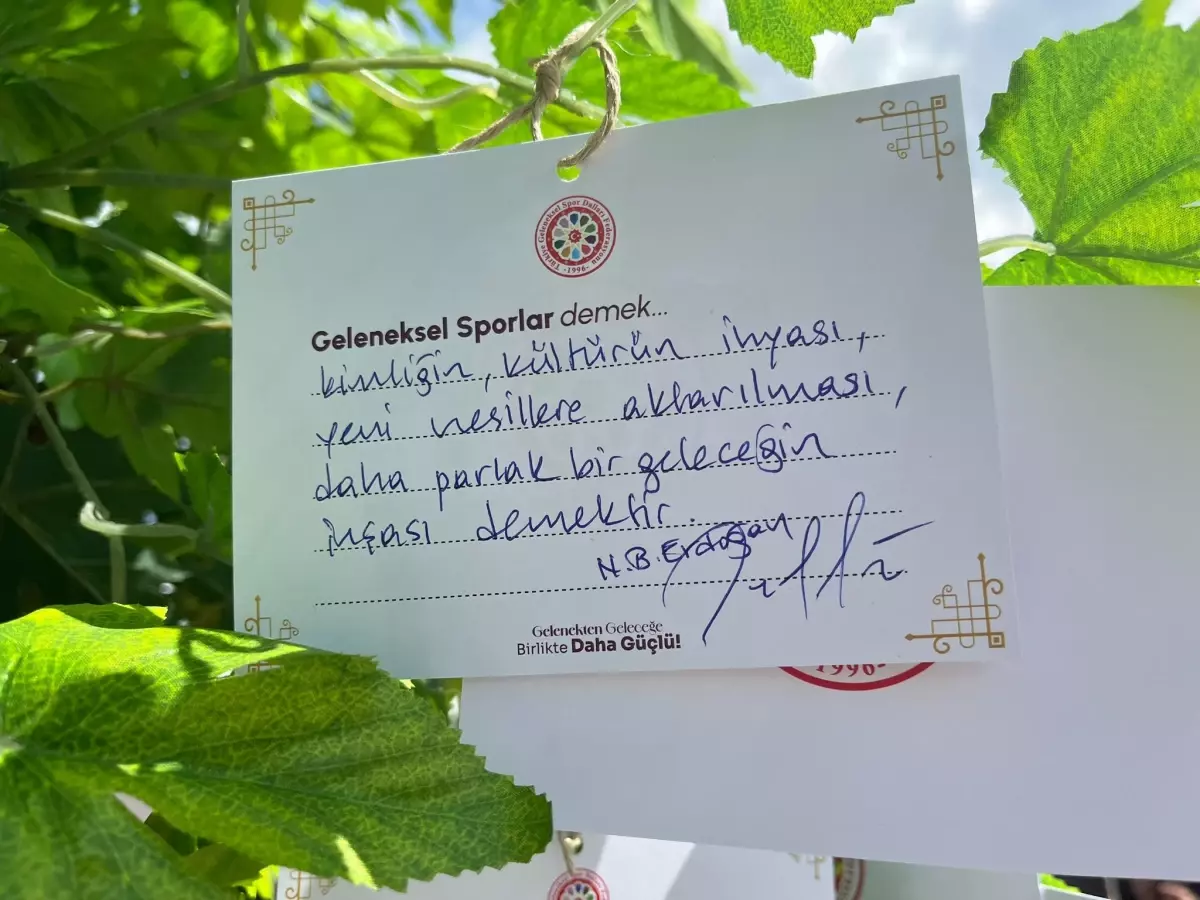 Türkiye Geleneksel Spor Dalları Federasyonu
-1996-
Geleneksel Sporlar demek...
kimliğin, kültürün ihyası,
yeni nesillere aktarılması,
daha parlak bir geleceğin
inşası demektir.
N.B.Erdoğan
Gelenekten Geleceğe
Birlikte Daha Güçlü!
1996-